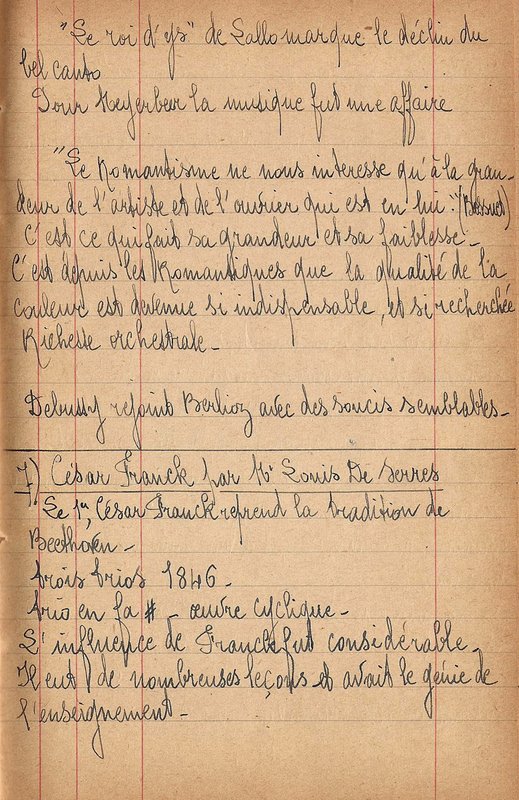 "Le roi d'ys" de Lallo marque le déclin du
bel canto
Pour Meyerbeer la musique fut une affaire
"Le Romantisme ne nous intéresse qu'à la gran-
deur de l'artiste et de l'ouvrier qui est en lui" (Bossuet)
C'est ce qui fait sa grandeur et sa faiblesse -
C'est depuis les Romantiques que la qualité de la
couleur est devenue si indispensable, et si recherchée
Richesse orchestrale -
Debussy rejoint Berlioz avec des soucis semblables -
7) César Franck par Mr Louis De Serres
Le 1er, César Franck reprend la tradition de
Beethoven -
trois trios 1846 -
trio en fa # - œuvre cyclique -
L'influence de Franck fut considérable -
Il eut de nombreuses leçons et avait le génie de
l'enseignement -